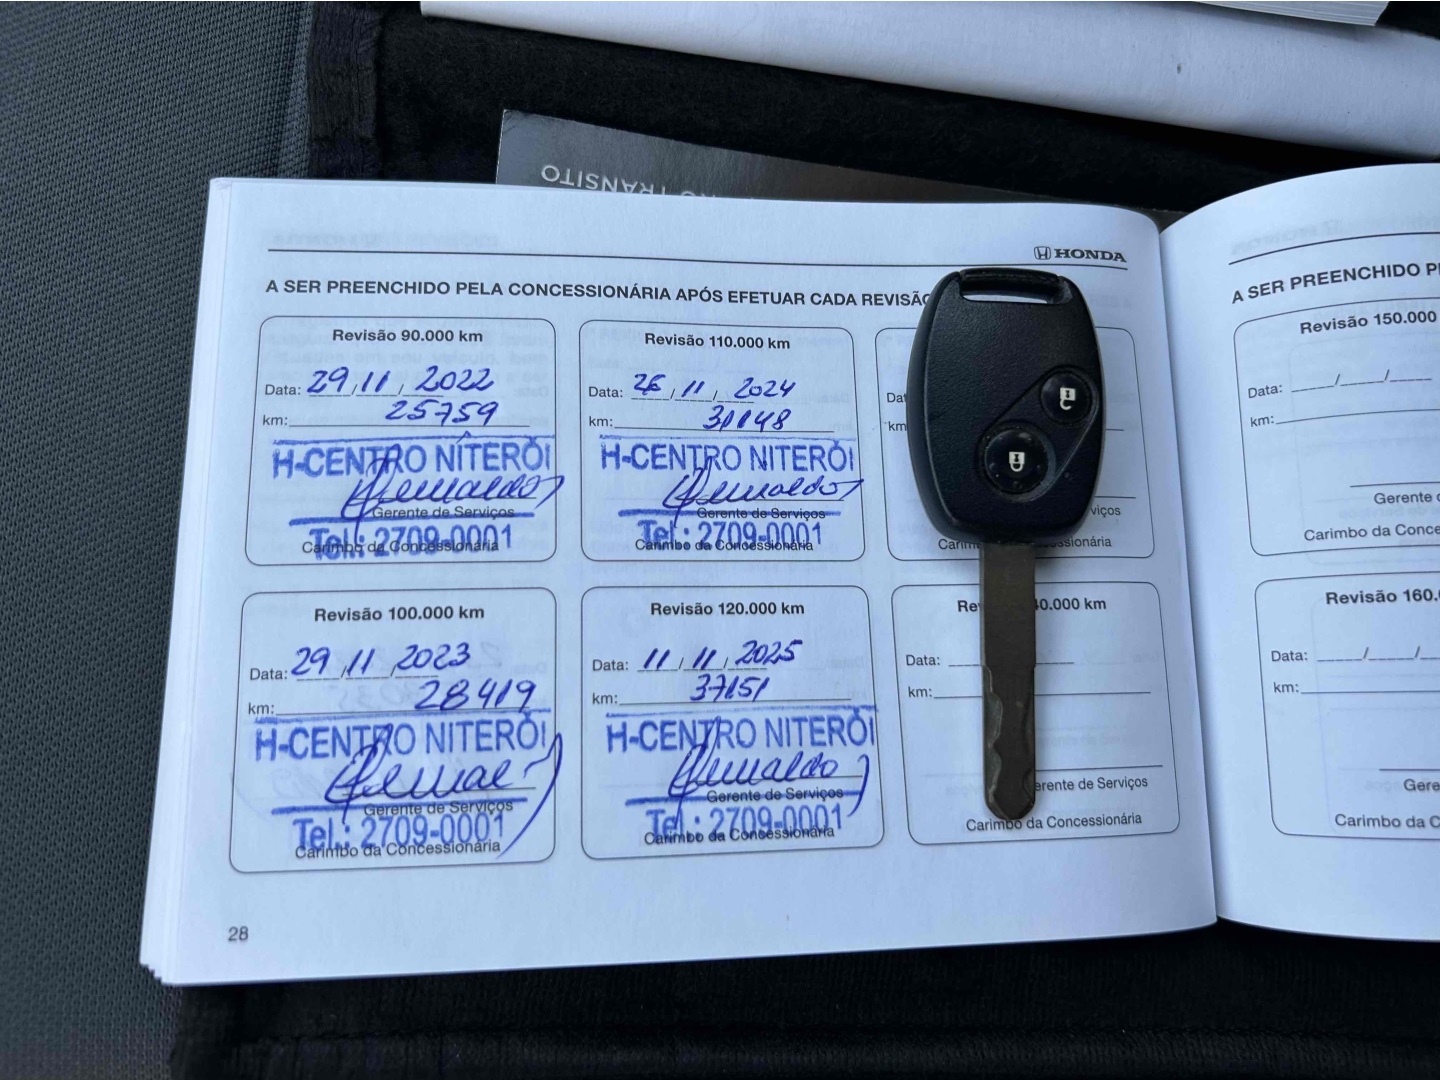 NO TRÂNSITO
HONDA
A SER PREENCHIDO PELA CONCESSIONÁRIA APÓS EFETUAR CADA REVISÃO
Revisão 90.000 km
Data: 29/11/2022
km: 25759
H-CENTRO NITERÓI
Gerente de Serviços
Tel.: 2709-0001
Carimbo da Concessionária
Revisão 100.000 km
Data: 29/11/2023
km: 28419
H-CENTRO NITERÓI
Gerente de Serviços
Tel.: 2709-0001
Carimbo da Concessionária
Revisão 110.000 km
Data: 26/11/2024
km: 31148
H-CENTRO NITERÓI
Gerente de Serviços
Tel.: 2709-0001
Carimbo da Concessionária
Revisão 120.000 km
Data: 11/11/2025
km: 37151
H-CENTRO NITERÓI
Gerente de Serviços
Tel.: 2709-0001
Carimbo da Concessionária
Dat
km
viços
Carim ssionária
Re 40.000 km
Data:
km:
erente de Serviços
Carimbo da Concessionária
28
A SER PREENCHIDO P
Revisão 150.000
Data:
km:
Gerente
Carimbo da Conce
Revisão 160.
Data:
km:
Gere
Carimbo da C